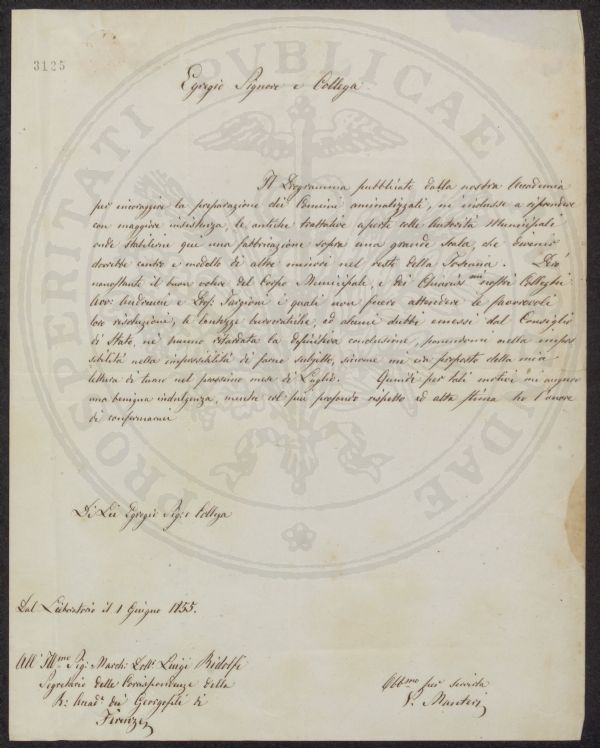 3125
Egregio Signore e Collega
Il Programma pubblicato dalla nostra Accademia
per incoraggire la preparazione dei Concimi animalizzati, m'indusse a riprendere
con maggiore insistenza, le antiche trattative aperte colle Autorità Municipali
onde stabilire qui una fabbricazione sopra una grande scala, che divenir
dovrebbe centro e modello di altre minori nel resto della Toscana. Però
nonostante il buon volere del Corpo Municipale, e dei Chiariss.mi nostri Colleghi
Avv. Andreucci e Prof. Targioni i quali non fecero attendere le favorevoli
loro risoluzioni, le lentezze burocratiche, ed alcuni dubbi emessi dal Consiglio
di Stato, ne hanno ritardata la definitiva conclusione, ponendomi nella
impossibilità di farne subjetto, siccome mi era proposto della mia
lettura di turno nel prossimo mese di Luglio. Quindi per tali motivi mi auguro
una benigna indulgenza, mentre col più profondo rispetto ed alta stima ho l'onore
di confermarmi
Di Lei Egregio Sig.r Collega
Dal Laboratorio il 1 Giugno 1855.
All' Ill.mo Sig. March. Cav. Luigi Ridolfi
Segretario delle Corrispondenze della
R. Accad.a dei Georgofili di
Firenze
Obb.mo per servirla
V. Manteri
PROSPERITATI PUBLICAE AUGENDAE